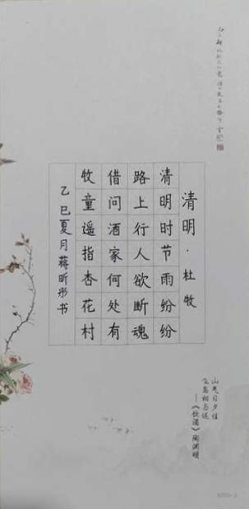 清明·杜牧
清明时节雨纷纷
路上行人欲断魂
借问酒家何处有
牧童遥指杏花村
乙巳夏月蒋昕彤书
山气日夕佳
飞鸟相与还
——《饮酒》陶渊明